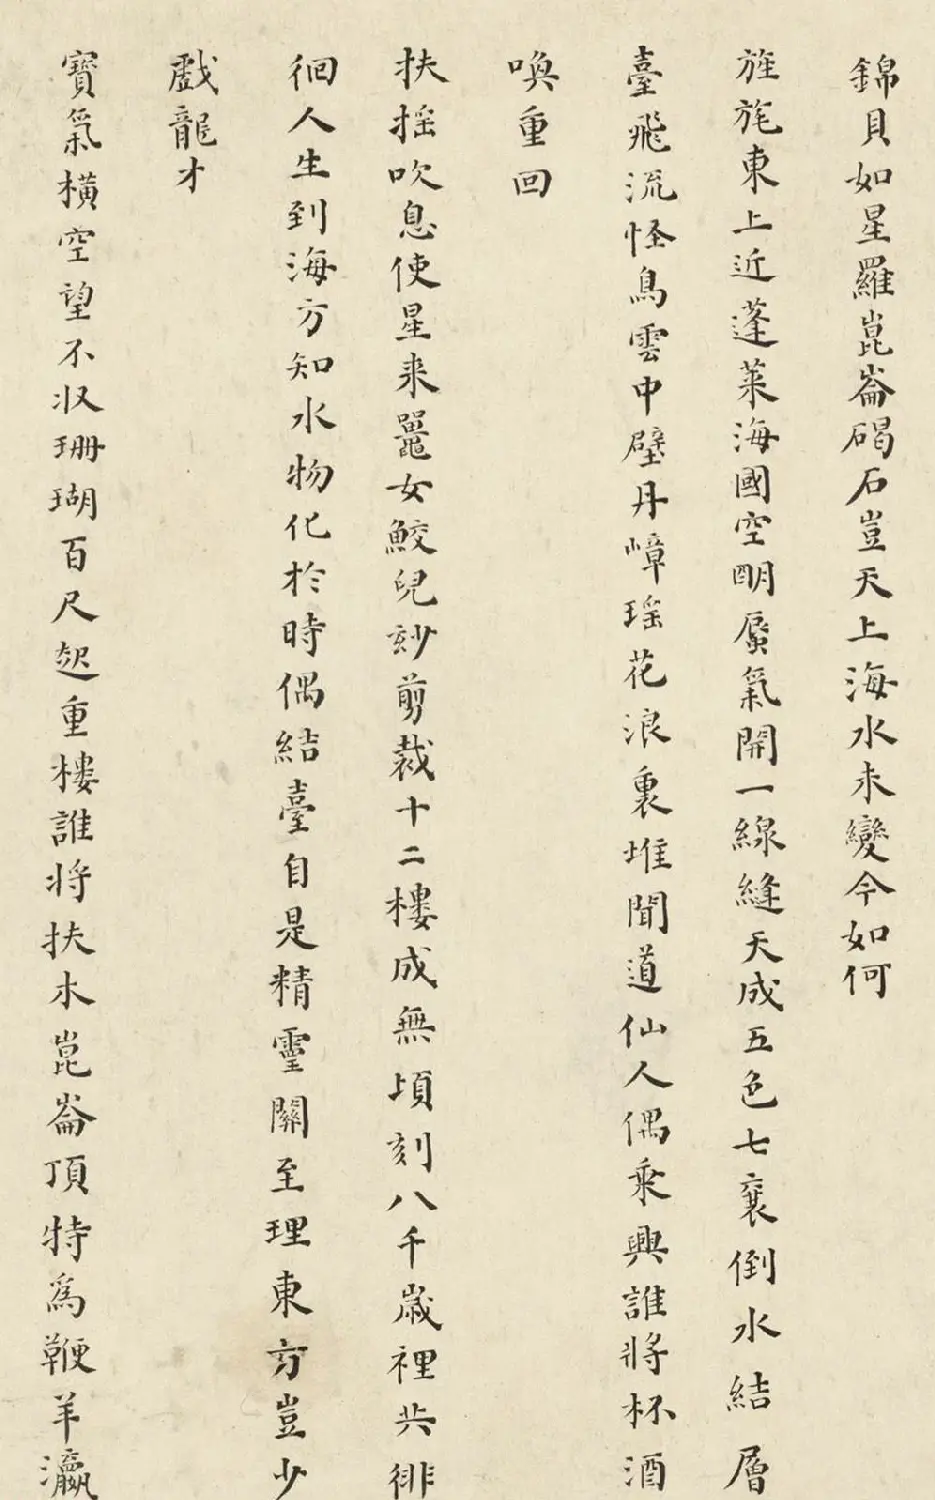 錦貝如星羅崑崙碣石豈天上海水未變今如何
旌旄東上近蓬萊海國空明蜃氣開一線縫天成五色七襄倒水結層
臺飛流怪鳥雲中壁丹嶂瑤花浪裏堆聞道仙人偶乘興誰將杯酒
喚重回
扶搖吹息使星来鼉女鮫兒玅剪裁十二樓成無頃刻八千歲裡共徘
徊人生到海方知水物化於時偶結臺自是精靈關至理東方豈少
戲龍才
寶氣橫空望不収珊瑚百尺起重樓誰將扶木崑崙頂特為鞭羊瀛